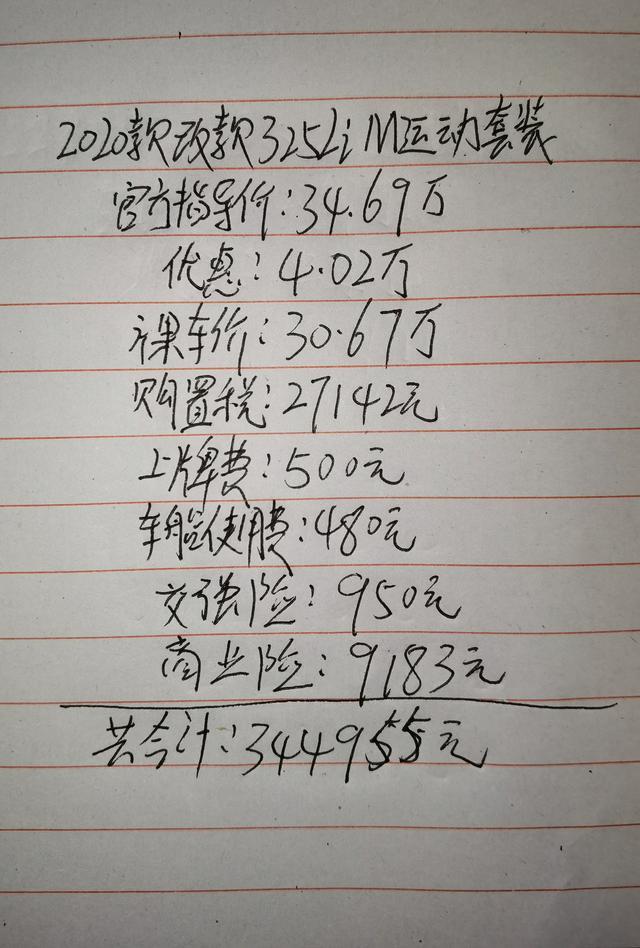 2020款改款325Li M运动套装
官方指导价:34.69万
优惠:4.02万
裸车价:30.67万
购置税:27142元
上牌费:500元
车船使用费:480元
交强险:950元
商业险:9183元
共合计:344955元